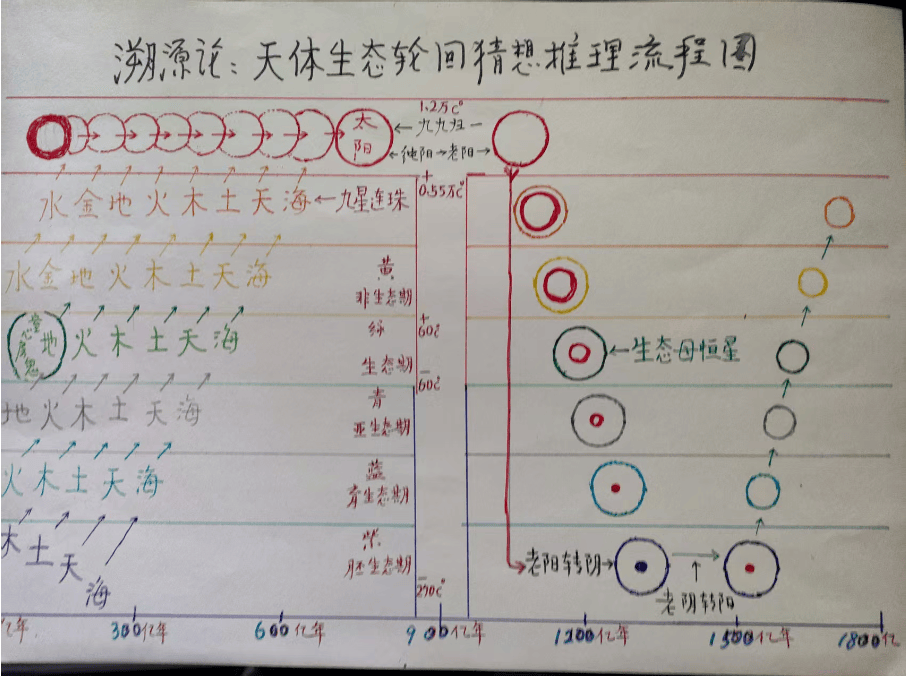 溯源论：天体生态轮回猜想推理流程图
太阳
1.2万c°
←九九归一
←纯阳→老阳→
水金地火木土天海←九星连珠
+
0.55万c°
水金地火木土天海
黄
非生态期
地火木土天海
绿
生态期
+
60c°
←生态母恒星
地火木土天海
青
亚生态期
-
60c°
火木土天海
蓝
育生态期
木土天海
紫
胚生态期
-
270c°
老阳转阴→
老阴转阳
亿年
300亿年
600亿年
900亿年
1200亿年
1500亿年
1800亿